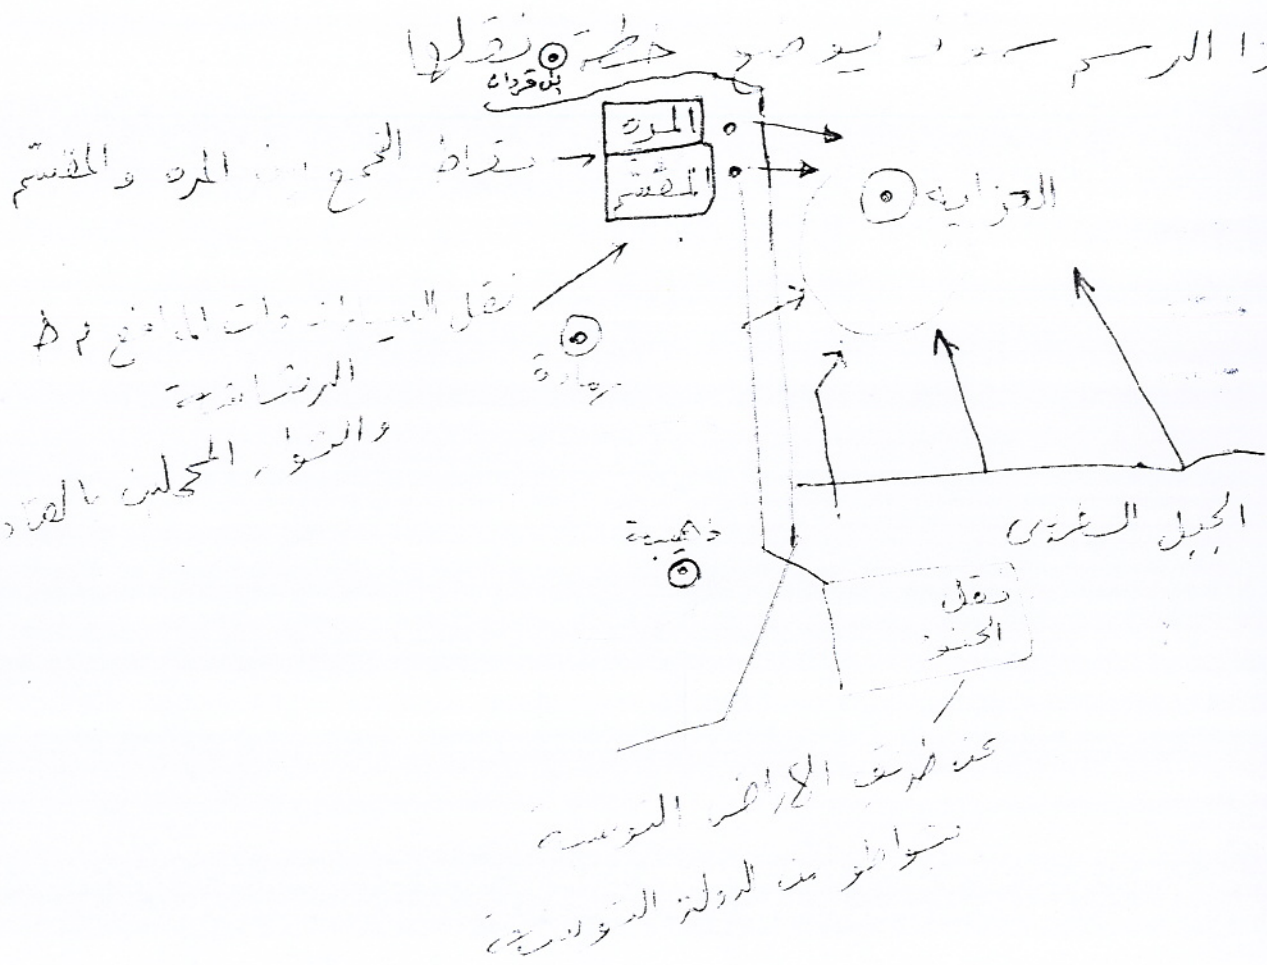 ذا الرسم سوف يوضح خطة نقلها
بن قردان
المره
المقسم
نقاط التجمع بين المره والمقسم
العزايه
نقل السيارات ذات المدافع م ط
الرشاشة
والثوار المحملين بالعتاد
رمادة
ذهيبة
الجبل الغربى
نقل
الجنود
عن طريق الاراضى التونسية
بتواطؤ من الدولة التونسية